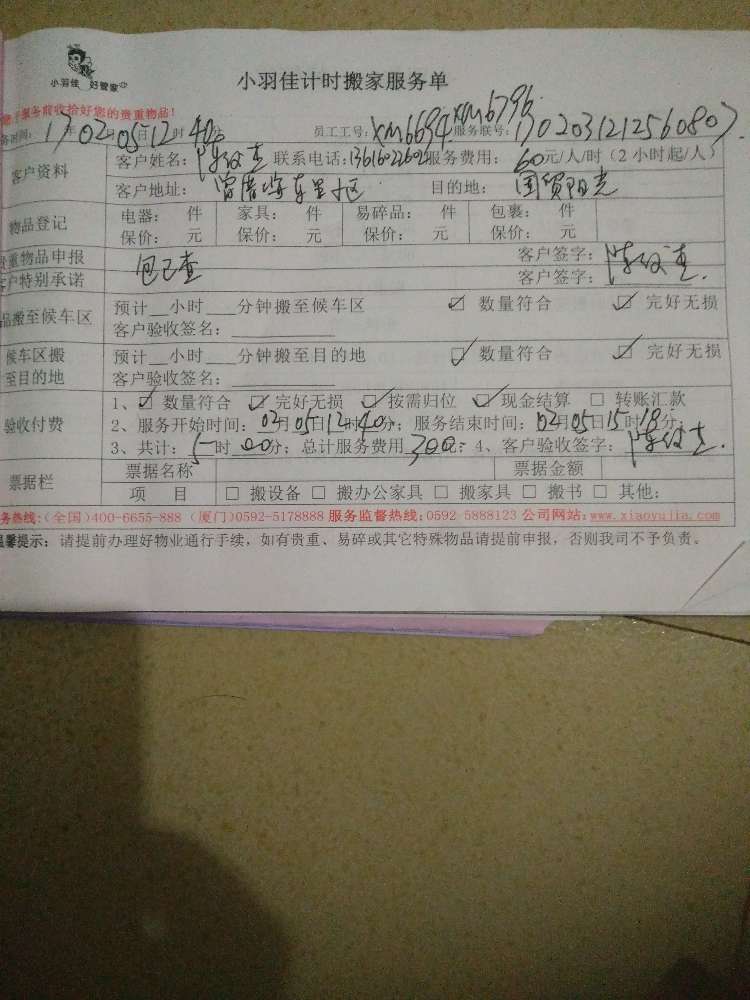 小羽佳 好管家
小羽佳计时搬家服务单
服务前收拾好您的贵重物品!
17年02月05日12时40分 员工工号:xm6694 xm6796 服务联号:1702031212560807
客户资料 客户姓名: 联系电话:13616022602 服务费用:60元/人/时(2小时起/人)
客户地址:曾厝垵东里社区 目的地:国贸阳光
物品登记 电器: 件 家具: 件 易碎品: 件 包裹: 件
保价: 元 保价: 元 保价: 元 保价: 元
贵重物品申报 包已查 客户签字:
客户特别承诺 客户签字:
品搬至候车区 预计__小时___分钟搬至候车区 ☑ 数量符合 ☑ 完好无损
客户验收签名:
候车区搬至目的地 预计__小时___分钟搬至目的地 ☑ 数量符合 ☑ 完好无损
客户验收签名:
验收付费 1、☑ 数量符合 ☑ 完好无损 ☑ 按需归位 ☑ 现金结算 □ 转账汇款
2、服务开始时间:02月05日12时40分;服务结束时间:02月05日15时18分;
3、共计:5时00分;总计服务费用300元;4、客户验收签字:
票据栏 票据名称 票据金额
项 目 □ 搬设备 □ 搬办公家具 □ 搬家具 □ 搬书 □ 其他:
务热线:(全国)400-6655-888 (厦门)0592-5178888 服务监督热线:0592-5888123 公司网站:www.xiaoyujia.com
温馨提示:请提前办理好物业通行手续,如有贵重、易碎或其它特殊物品请提前申报,否则我司不予负责。